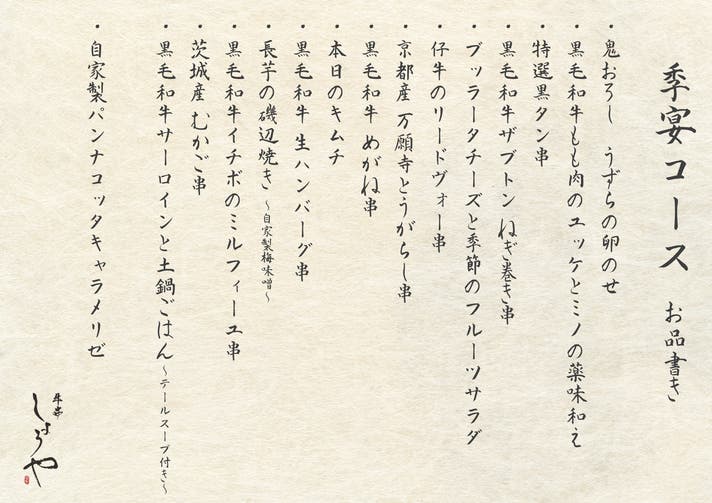 季宴コース お品書き
・鬼おろし うずらの卵のせ
・黒毛和牛もも肉のユッケとミノの薬味和え
・特選黒タン串
・黒毛和牛ザブトン ねぎ巻き串
・ブッラータチーズと季節のフルーツサラダ
・仔牛のリードヴォー串
・京都産 万願寺とうがらし串
・黒毛和牛 めがね串
・本日のキムチ
・黒毛和牛 生ハンバーグ串
・長芋の磯辺焼き ～自家製梅味噌～
・黒毛和牛イチボのミルフィーユ串
・茨城産 むかご串
・黒毛和牛サーロインと土鍋ごはん ～テールスープ付き～
・自家製パンナコッタキャラメリゼ
牛串
しょうや